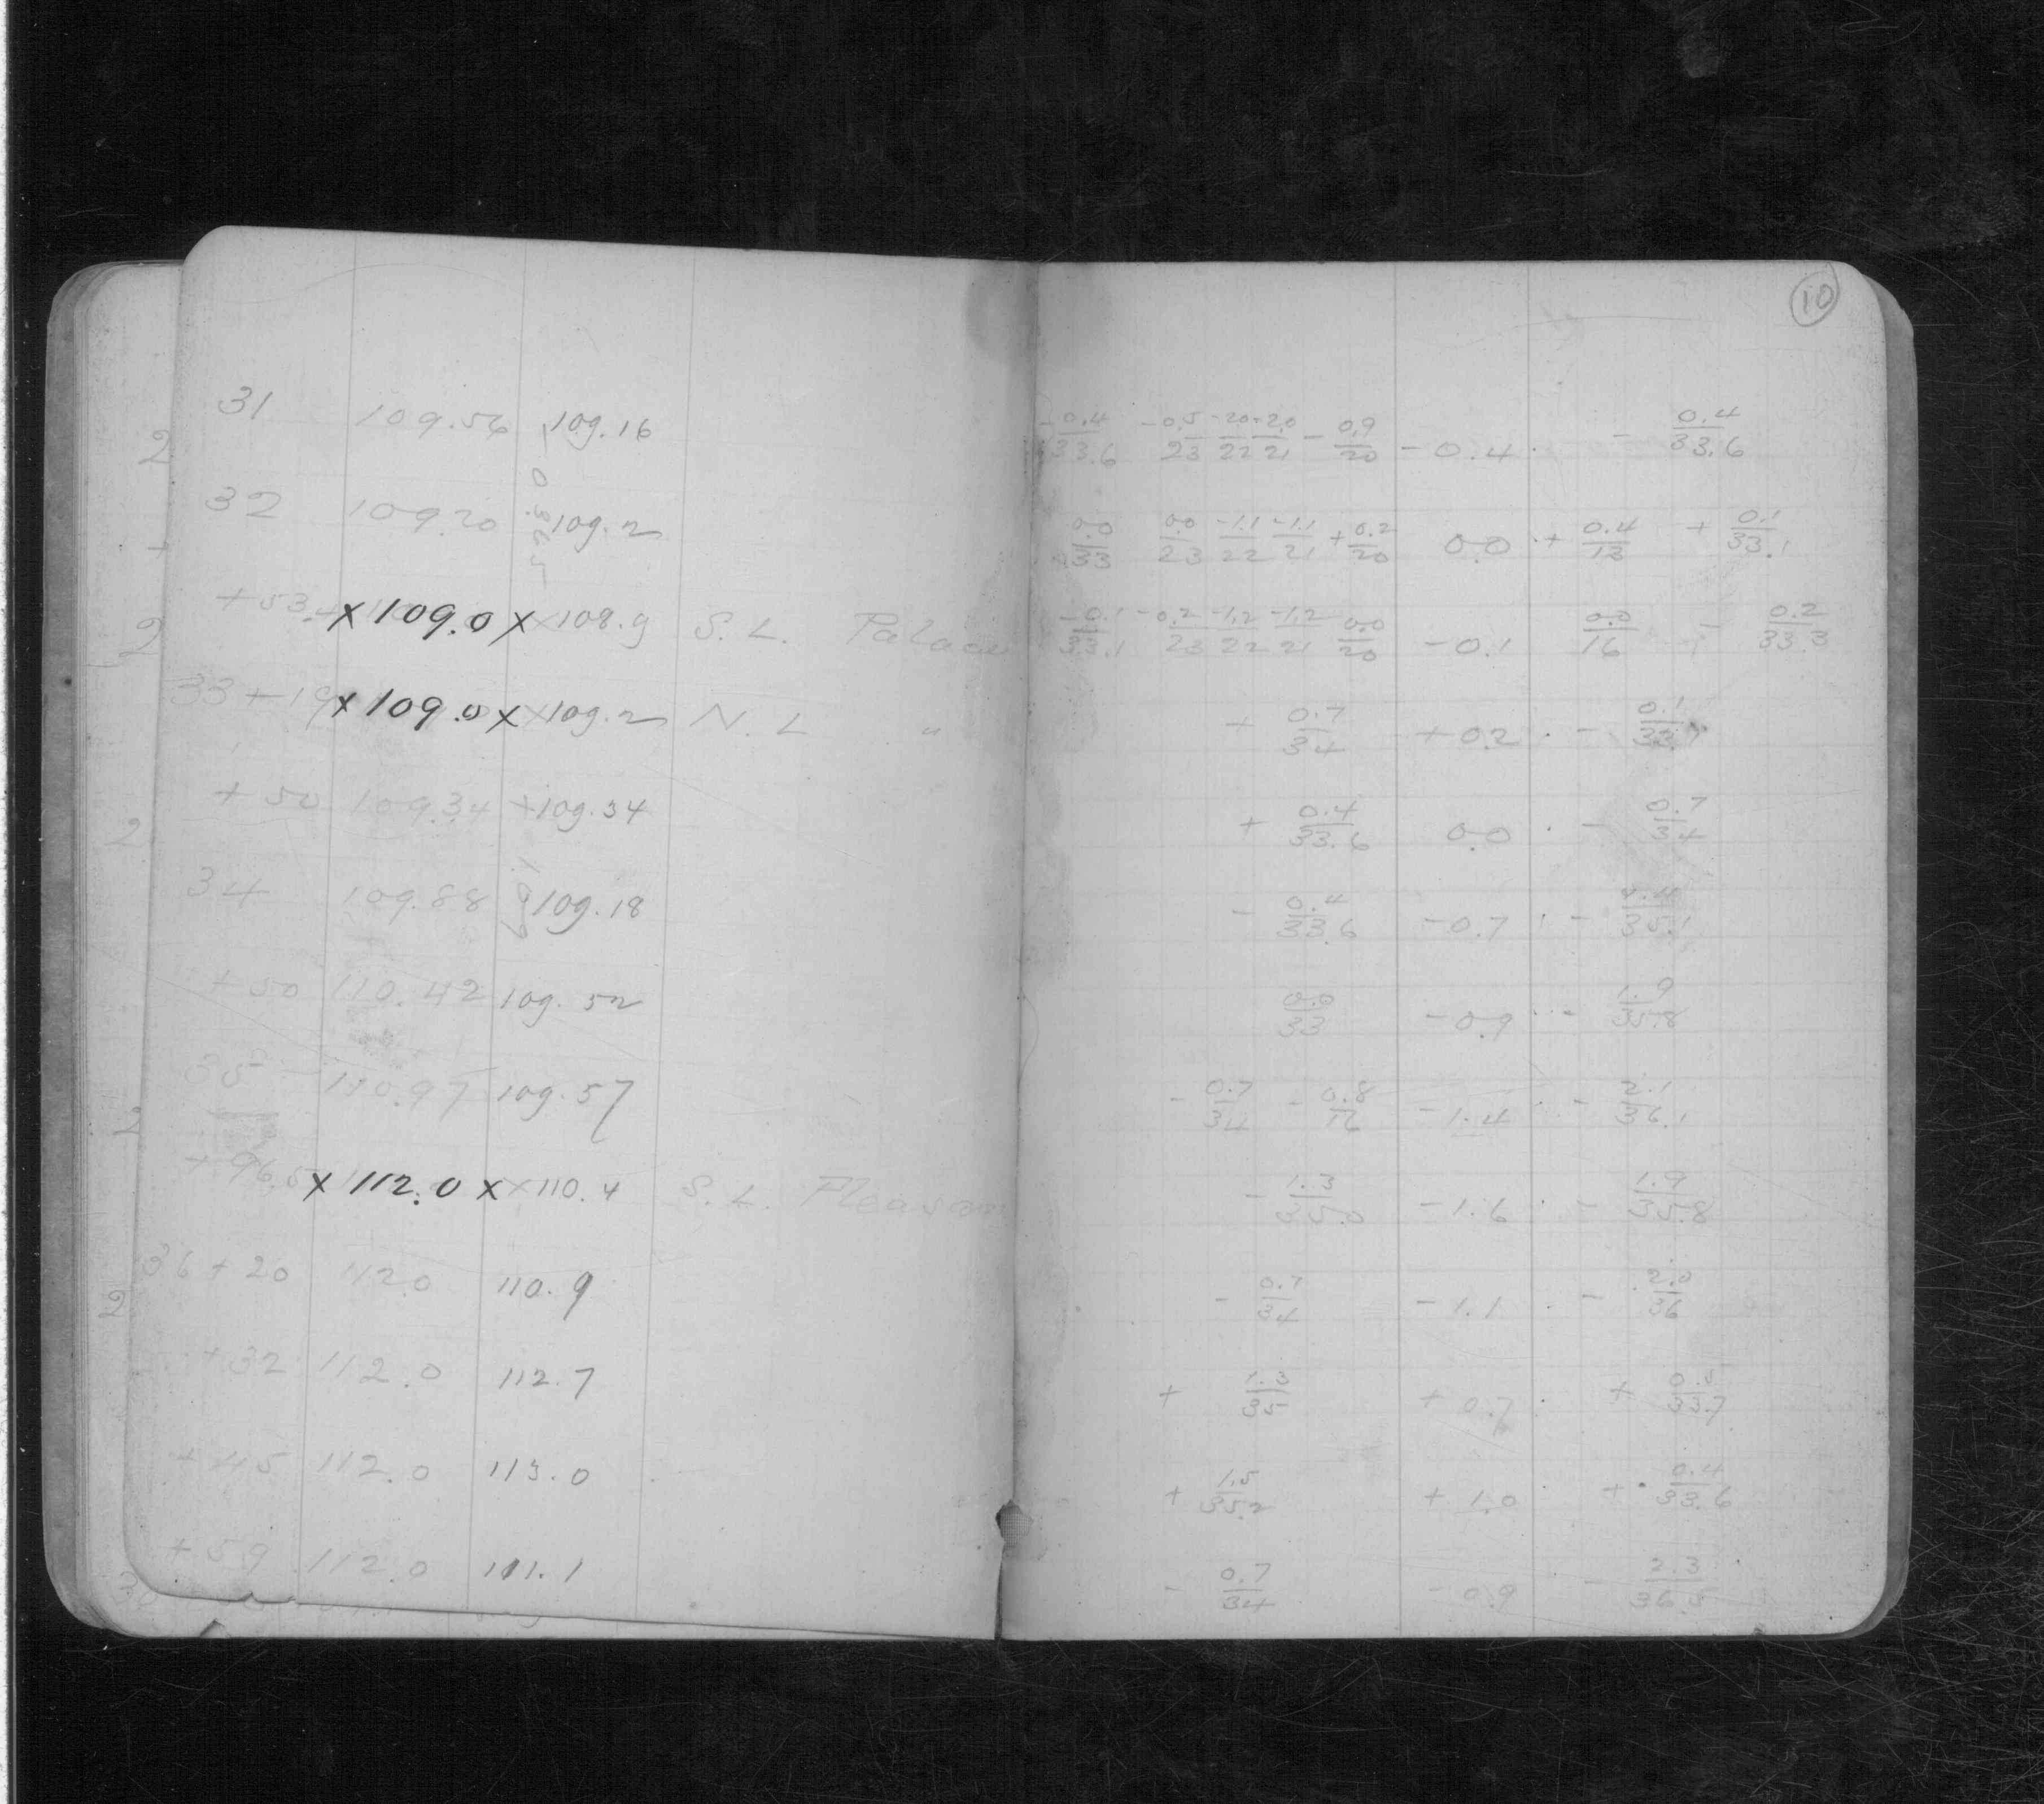 10
31 109.56 109.16 - 0.4/33.6 - 0.5/23 - 2.0/22 - 2.0/21 - 0.9/20 - 0.4 - 0.4/33.6
32 109.20 109.2 0.0/33 0.0/23 -1.1/22 -1.1/21 + 0.2/20 0.0 + 0.4/13 + 0.1/33.1
+53.4 x 109.0 x x 108.9 S. L. Palace - 0.1/33.1 - 0.2/23 -1.2/22 -1.2/21 0.0/20 - 0.1 0.0/16 - 0.2/33.3
33+19 x 109.0 x x 109.2 N. L " + 0.7/34 + 0.2 - 0.1/33.1
+50 109.34 + 109.34 + 0.4/33.6 0.0 - 0.7/34
34 109.88 109.18 - 0.4/33.6 - 0.7 - 1.4/35.1
+50 110.42 109.52 0.0/33 - 0.9 - 1.9/35.8
35 110.97 109.57 - 0.7/34 - 0.8/16 - 1.4 - 2.1/36.1
+96.5 x 112.0 x x 110.4 S. L. Pleasant - 1.3/35.0 - 1.6 - 1.9/35.8
36+20 112.0 110.9 - 0.7/34 - 1.1 - 2.0/36
+32 112.0 112.7 + 1.3/35 + 0.7 + 0.5/33.7
+45 112.0 113.0 + 1.5/35.2 + 1.0 + 0.4/33.6
+59 112.0 111.1 - 0.7/34 - 0.9 - 2.3/36.5